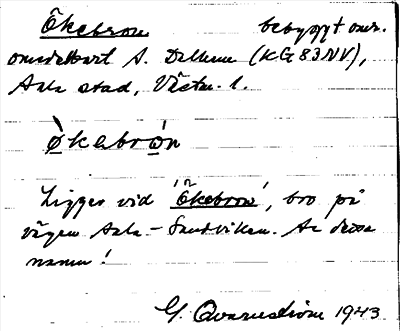 Ökebron bebyggt omr.
omedelbart S. Dalhem (KG83NV),
Sala stad, Västm. l.
ø̀kebrón
Ligger vid 'Ökebron', bro på
vägen Sala – Sandviken. Av dessa
namn!
G. Qvarnström 1943